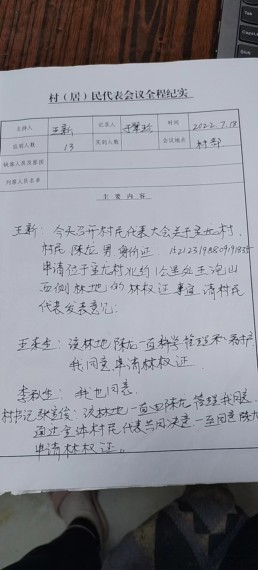 村（居）民代表会议全程纪实
主持人 王新 记录人 时间 2022.7.18
应到人数 13 实到人数 会议地点 村部
缺席人员及原因
列席人员名单
主要内容
王新：今天召开村民代表大会关于宝龙村
村民 陈龙 男 身份证
申请位于宝龙村北约1公里处王沟山
西侧林地的林权证事宜，请村民
代表发表意见：
该林地陈龙一直
我同意申请林权证。
李 生：我也同意。
村书记 该林地一直由陈龙管理我同意
通过全体村民代表共同决意一致同意陈龙
申请林权证。